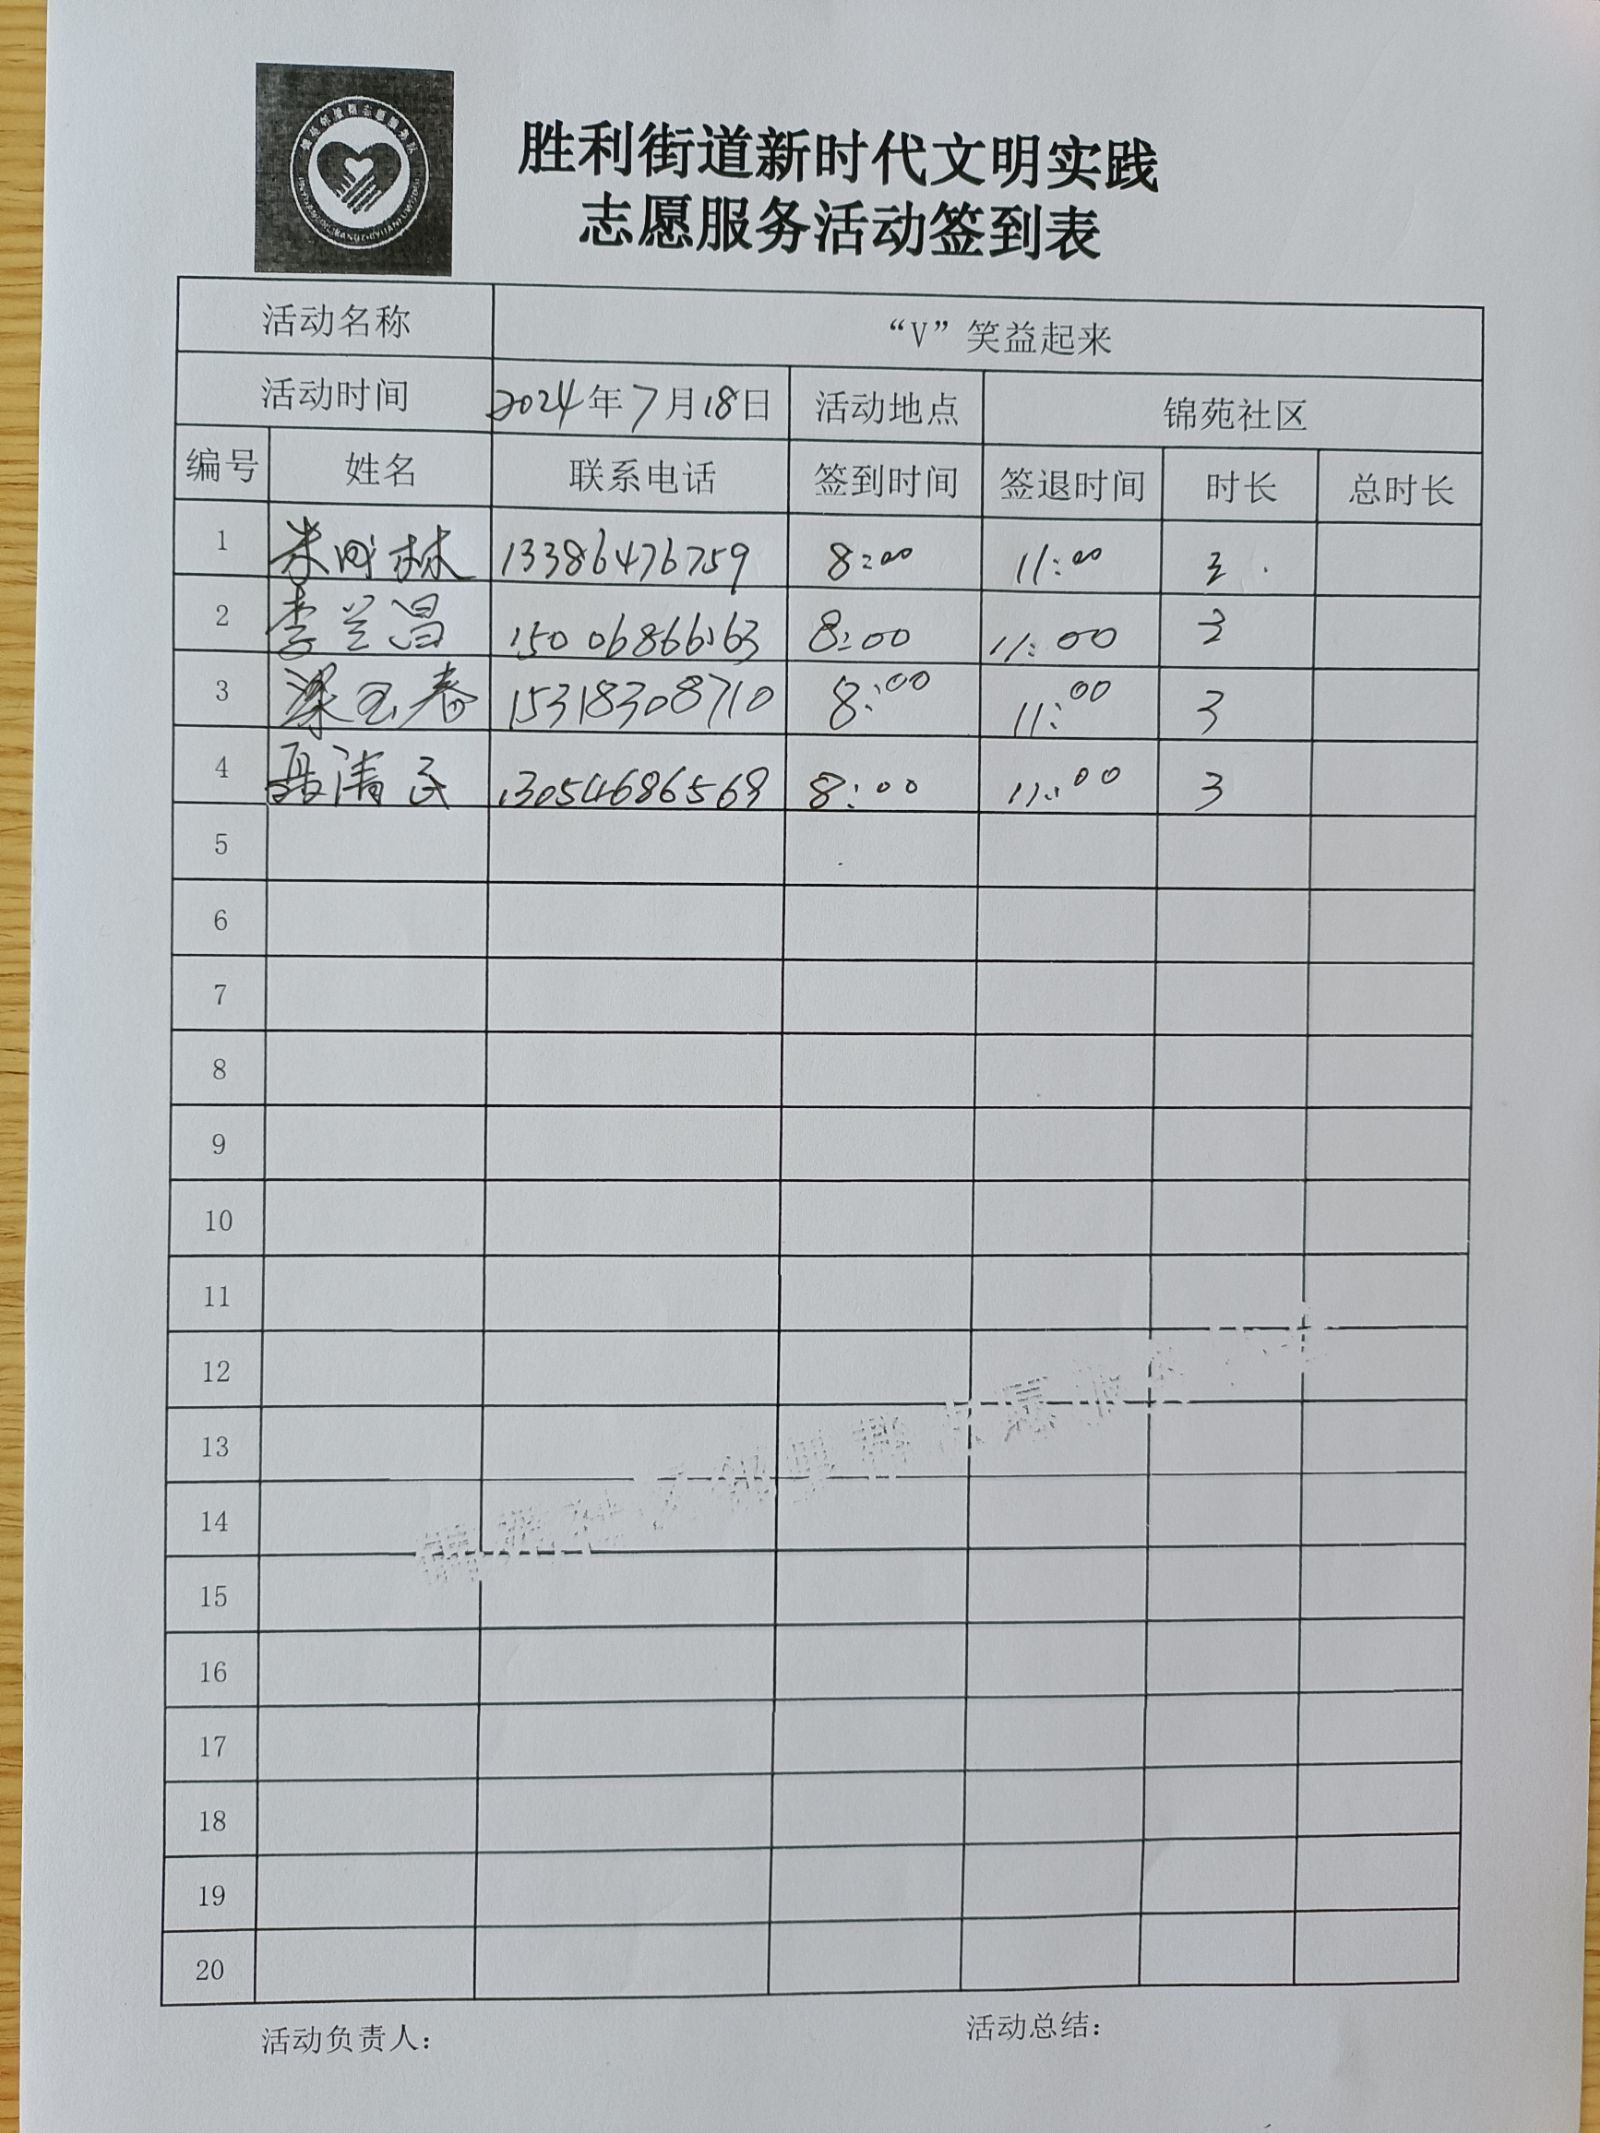 胜利街道新时代文明实践
志愿服务活动签到表
活动名称 “V”笑益起来
活动时间 2024年7月18日 活动地点 锦苑社区
编号 姓名 联系电话 签到时间 签退时间 时长 总时长
1 林 13386476759 8:00 11:00 3
2 李兰昌 15006866163 8:00 11:00 3
3 梁玉春 15318308710 8:00 11:00 3
4 聂清民 13054686569 8:00 11:00 3
5
6
7
8
9
10
11
12
13
14
15
16
17
18
19
20
活动负责人: 活动总结: